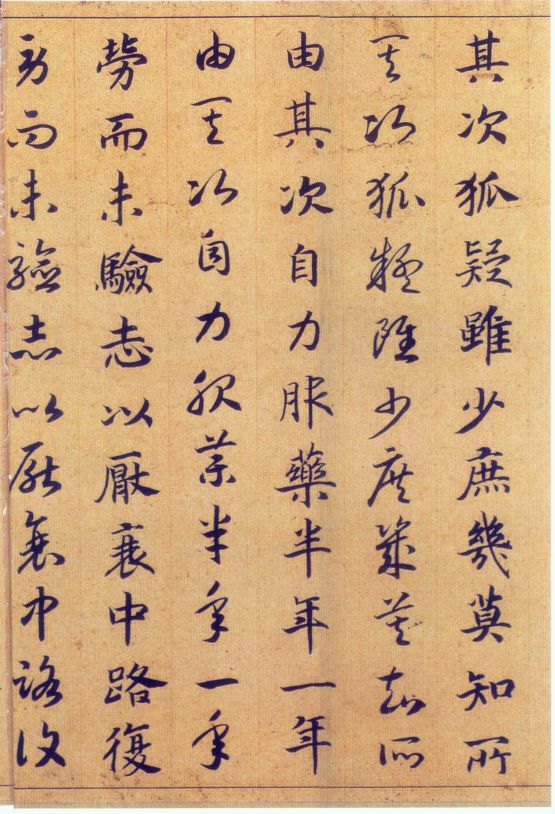 其次狐疑雖少庶幾莫知所
其次狐疑雖少庶幾莫知所
由其次自力服藥半年一年
由其次自力服藥半年一年
勞而未驗志以厭衰中路復
勞而未驗志以厭衰中路復